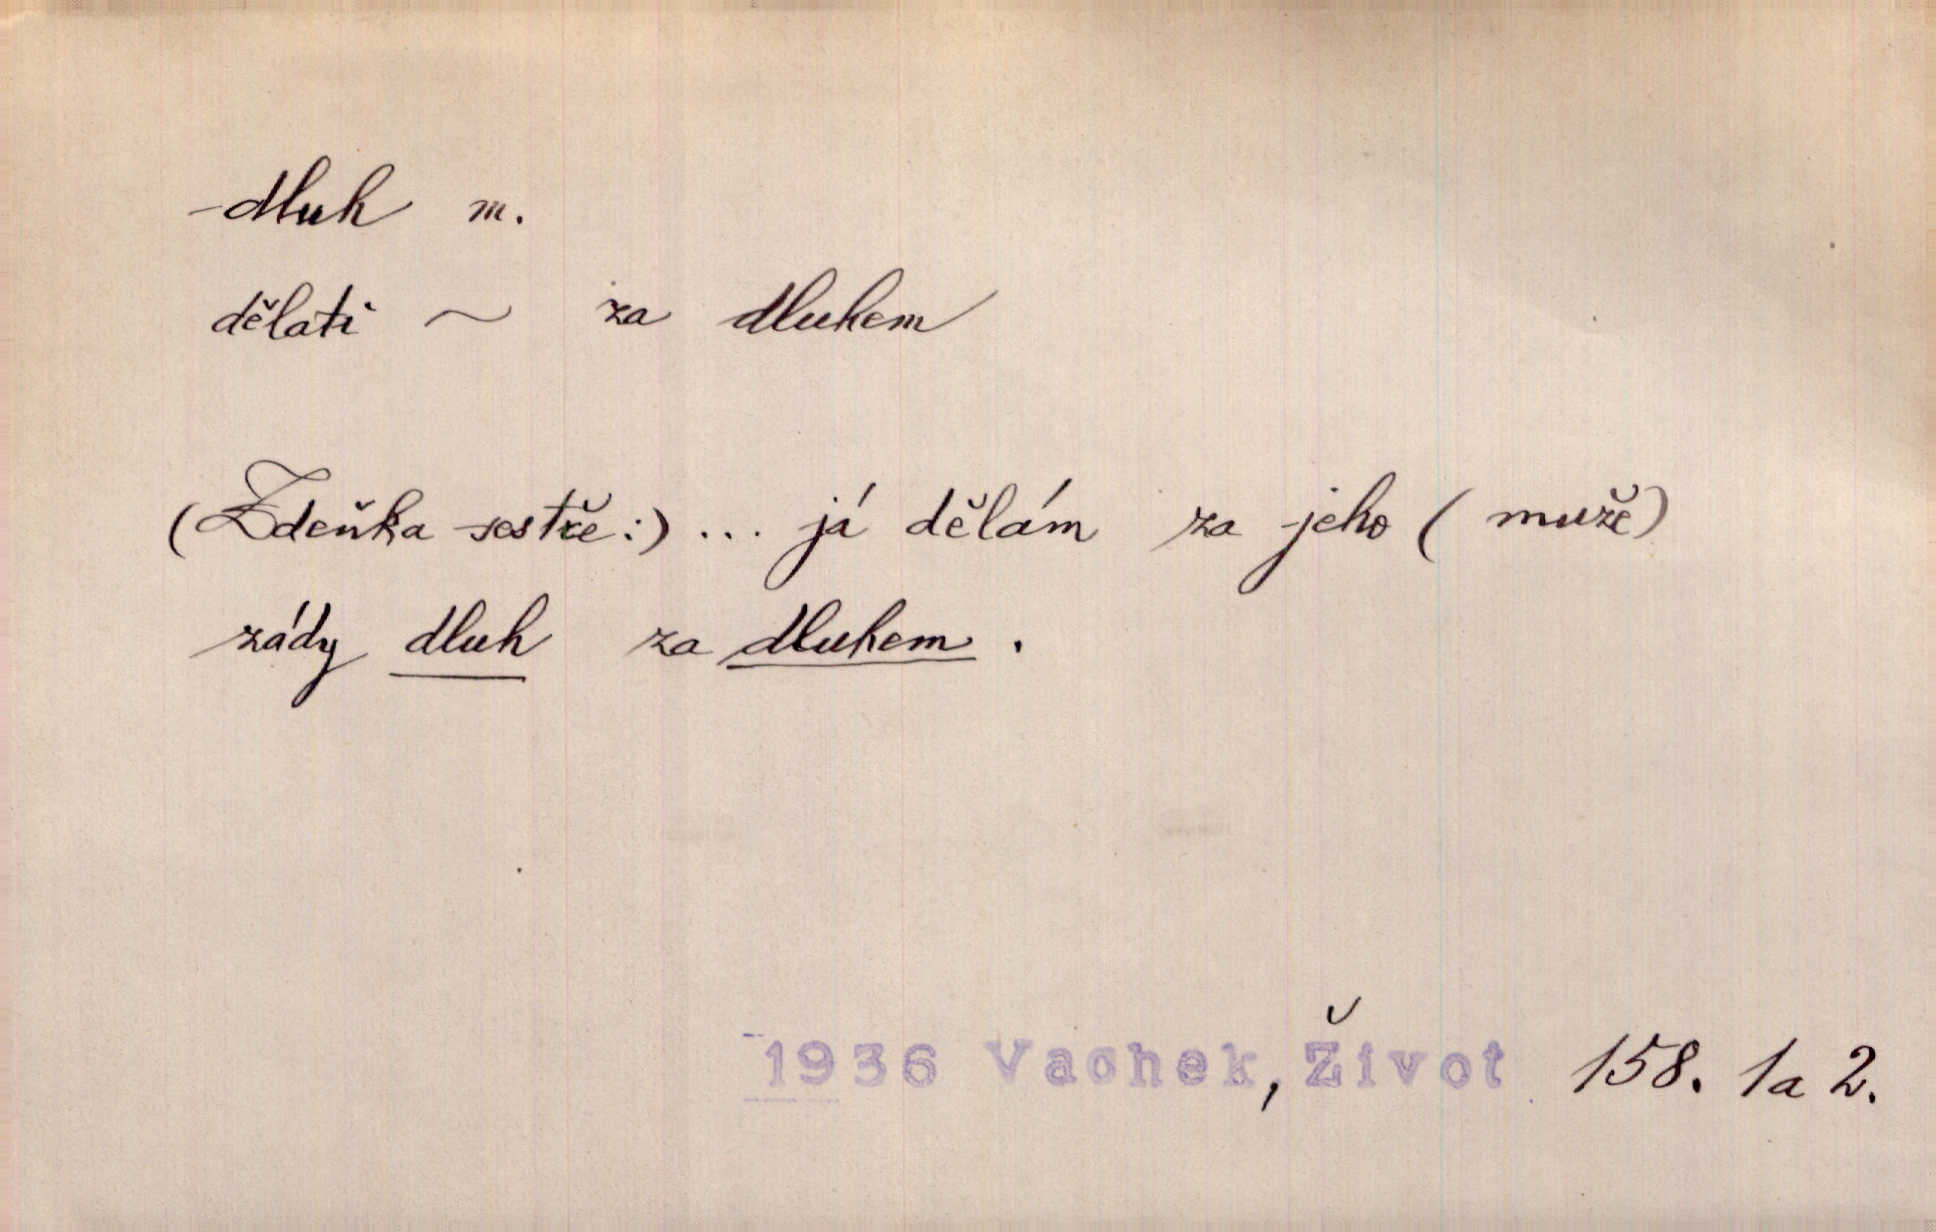 dluh m.
dělati ~ za dluhem
(Zdeňka sestře:) ... já dělám za jeho (muže)
zády dluh za dluhem.
1936 Vachek, Život 158. 1a 2.